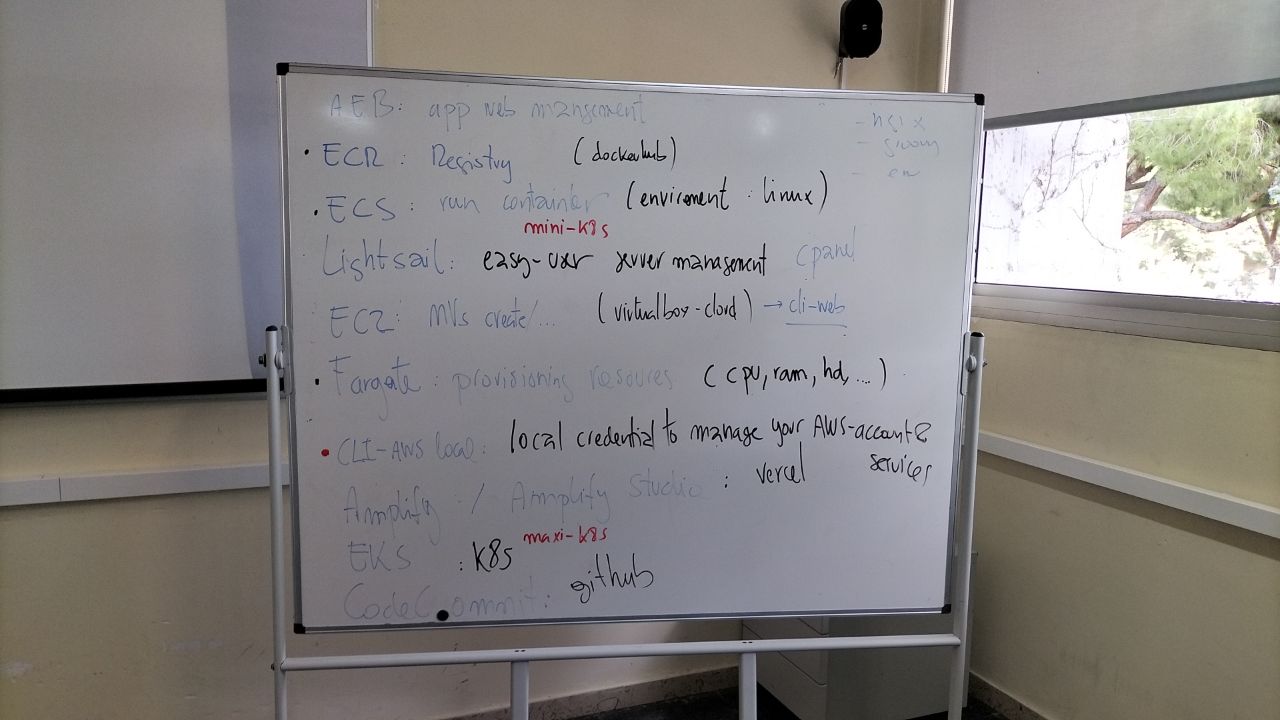 AEB: app web mangement
- ngix
• ECR : Registry (dockerhub)
• ECS : run container (enviroment : linux)
mini-k8s
Lightsail: easy-user server management cpanel
EC2: MVs create/... (virtualbox-cloud) → cli-web
• Fargate : provisioning resoures (cpu, ram, hd, ...)
• CLI-AWS local: local credential to manage your AWS-account &
services
Amplify / Amplify Studio : vercel
maxi-k8s
EKS : k8s
CodeCommit: github